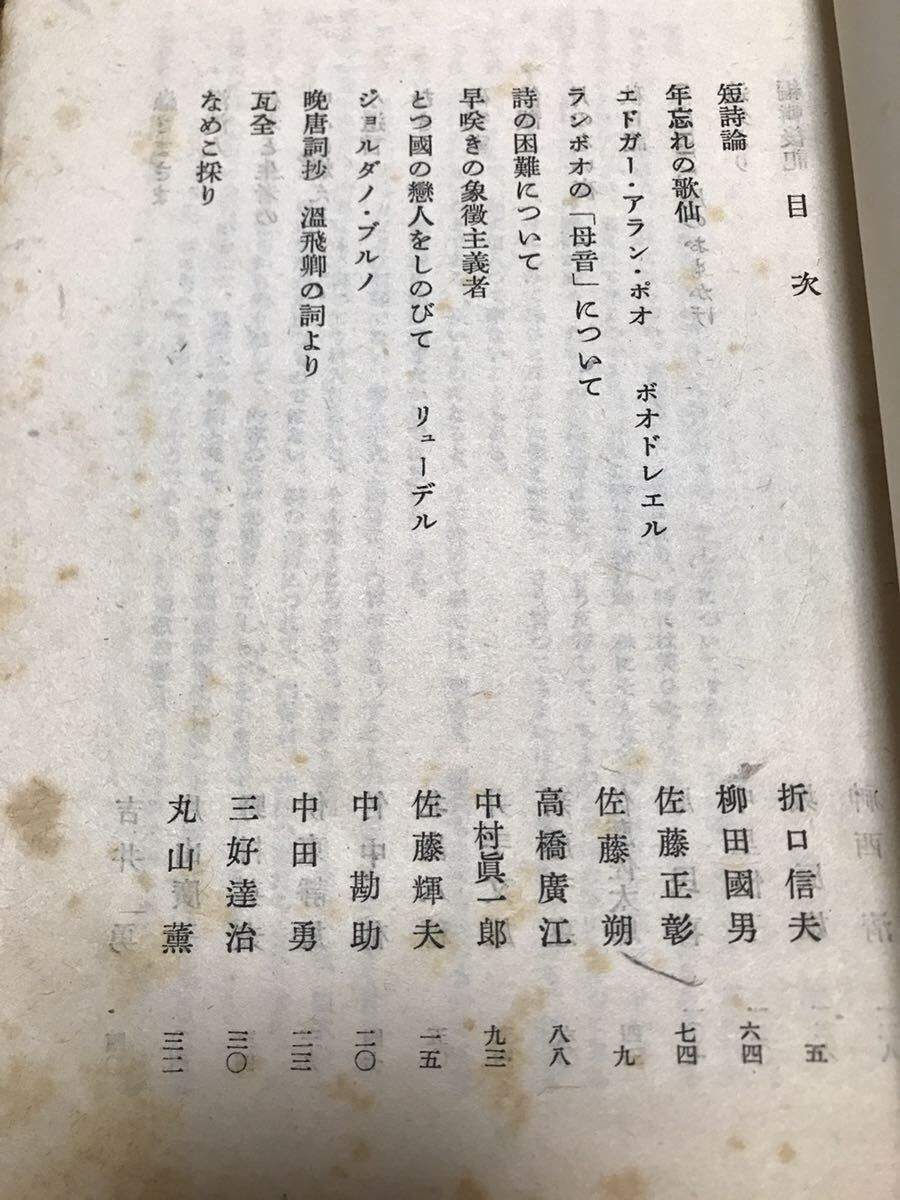 目次
短詩論 折口信夫 五
年忘れの歌仙 柳田國男 六四
エドガー・アラン・ポオ ボオドレエル 佐藤正彰 七四
ランボオの「母音」について 佐藤朔 九
詩の困難について 高橋廣江 八八
早咲きの象徴主義者 中村眞一郎 九三
とつ國の戀人をしのびて リューデル 佐藤輝夫 一五
ジョルダノ・ブルノ 中勘助 二〇
晩唐詞抄 溫飛卿の詞より 中田勇 二三
瓦全 三好達治 三〇
なめこ採り 丸山薫 三二